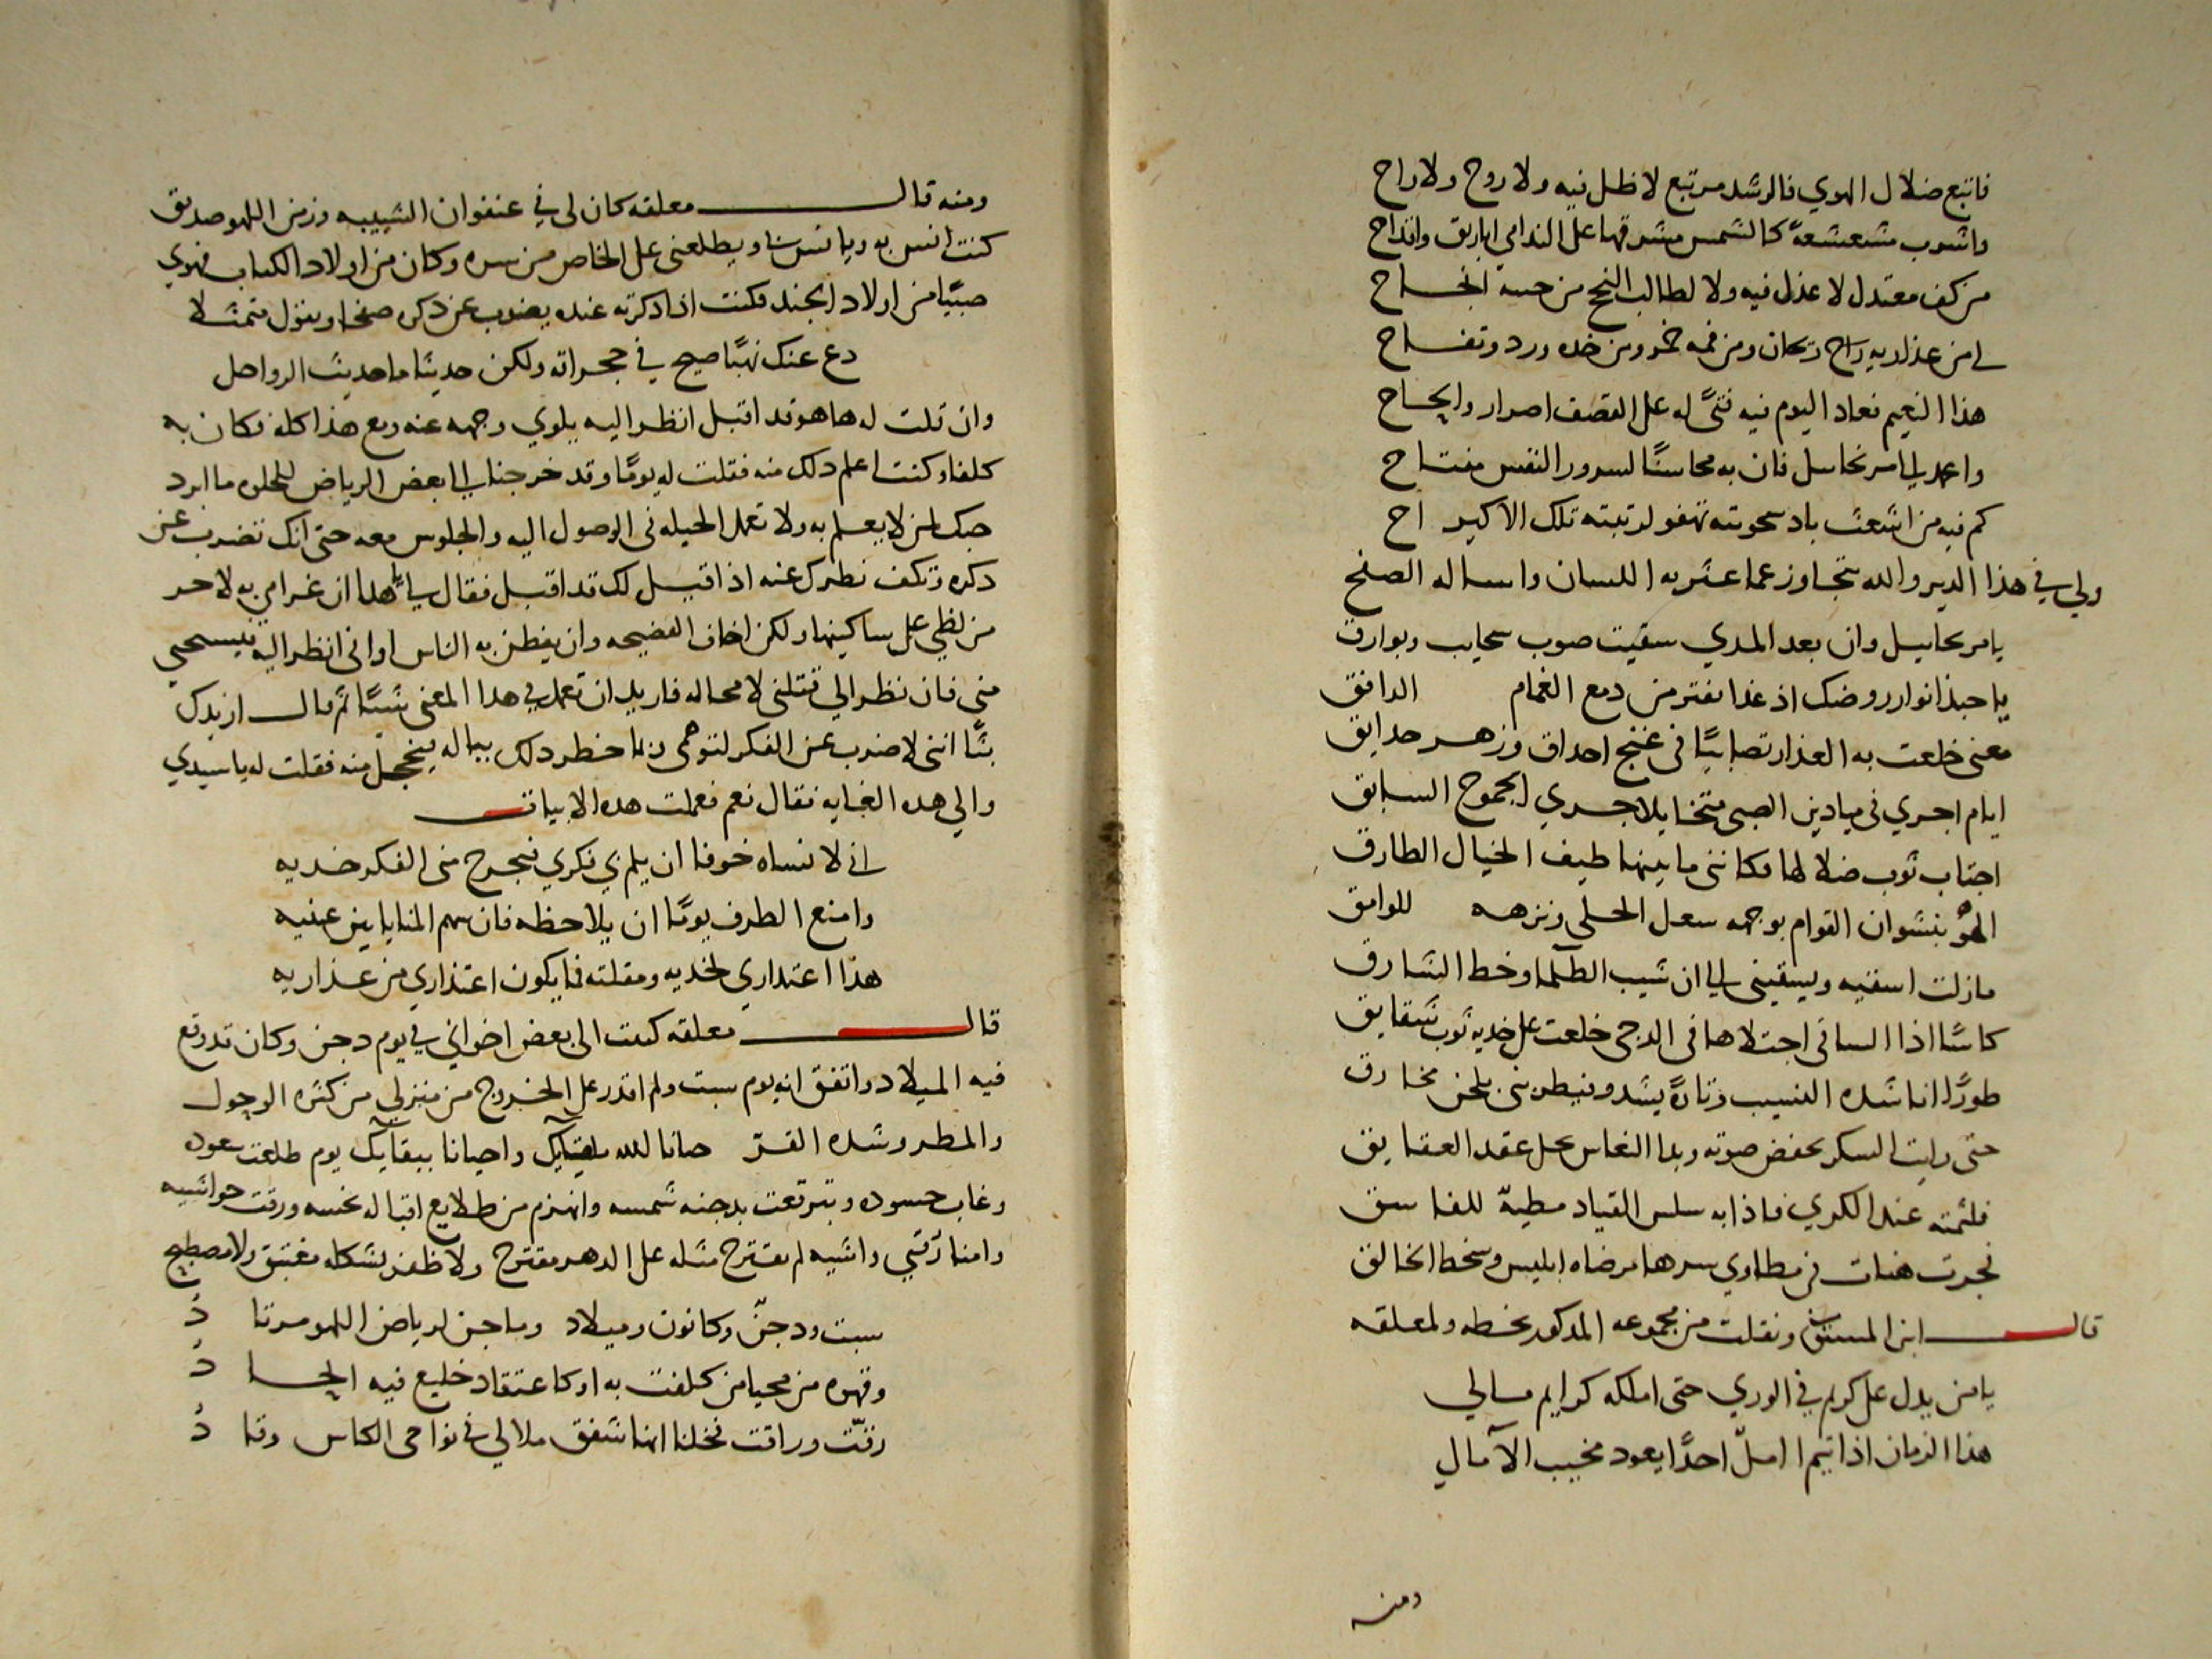 فاتبع ضلال الهوي فالرشد مرتبع لا ظل فيه ولا روح ولا راح
واشرب مشعشعة كالشمس مشرقها على الندامي اباريق واقداح
من كف معتدل لا عذل فيه ولا لطالب النجح من حسنه انجاح
لي من عذاريه راح ريحان ومن فمه خمر ومن خده ورد وتفاح
هذا النعيم فعاد اليوم فيه فتىً له على القصف اصرار والحاح
واعمد الي مر نحاسل فان به محاسنًا لسرور النفس مفتاح
كم فيه من اشعث باد سحوبته تهفو لرتبته تلك الاكيراح
ولي في هذا الدير والله يتجاوز عما عثر به اللسان واساله الصفح
يا مر نحاييل وان بعد المدي سقيت صوب سحايب وبوارق
يا حبذا نوار روضك اذ غدا يفتر من دمع الغمام الدافق
مغنى خلعت به العذار تصابيًا في غنج احداق وزهر حدايق
ايام اجري في ميادين الصبى متخايلا جري الجموح السابق
اجتاب ثوب ضلالها فكانني ما بينها طيف الخيال الطارق
الهو بنشوان القوام بوجهه سعل الحلى ونزهه للوامق
مازلت اسقيه ويسقيني الي ان شيب الظلما وخط الشارق
كاسًا اذا الساقي اجتلاها في الدجى خلعت على خديه ثوب شقايق
طورًا اناشده النسيب وتارةً يشدو فيطربني بلحن مخارق
حتى رايت السكر يخفض صوته وبدا النعاس يحل عقد العقايق
فلثمته عند الكري فاذا به سلس القياد مطيةً للفاسق
فجرت هنات في مطاوي سرها مرضاه ابليس وسخط الخالق
قال ابن المستوفي ونقلت من مجموعه المذكور بخطه ولمعلقه
يا من يدل على كريم في الوري حتى املكه كرايم مالي
هذا الزمان اذا تيمم امل احدًا يعود مخيب الآمالِ
ومنه
ومنه قال معلقه كان لي في عنفوان الشبيبه وزمن اللهو صديق
كنت انس به ويانس بنا ويطلعني على الخاص من سره وكان من اولاد الكتاب فهوي
صبيًا من اولاد الجند فكنت اذا ذكرته عنده يضرب عن ذكره صفحا ويقول متمثلا
دع عنك نهبًا صيح في حجراته ولكن حديثًا ما حديث الرواحل
وان قلت له ها هو قد اقبل انظر اليه يلوي وجهه عنه ومع هذا كله فكان به
كلفا وكنت اعلم ذلك منه فقلت له يومًا وقد خرجنا الي بعض الرياض للخلوه ما ابرد
حبك لمن لا يعلم به ولا تعمل الحيله في الوصول اليه والجلوس معه حتى انك تضرب عن
ذكره وتكف نظرك عنه اذا قيل لك قد اقبل فقال لي يا هذا ان غرامي به لاحر
من لظي على ساكنيها ولكن اخاف الفضيحه وان يفطن به الناس او اني انظر اليه فيستحيي
مني فان نظر الي قتلني لا محاله فاريد ان تعمل في هذا المعنى شيئًا ثم قال ازيدك
بثًا انني لاضرب عن الفكر لتوهمي ربما خطر ذلك بباله فيخجل منه فقلت له يا سيدي
والي هذه الغايه فقال نعم فعملت هذه الابيات
اني لا نساه خوفا ان يلم بي فكري فيجرح مني الفكر خديه
وامنع الطرف يومًا ان يلاحظه فان سهم المنايا بين عينيه
هذا اعتذاري لخديه ومقلته فما يكون اعتذاري من عذاريه
قال معلقه كتبت الى بعض اخواني في يوم دجن وكان قد وقع
فيه الميلاد واتفق انه يوم سبت ولم اقدر على الخروج من منزلي من كثره الوحول
والمطر وشده القرّ حيانا لله بلقيايك واحيانا ببقآيك يوم طلعت سعوده
وغاب حسوده وتبرقعت بدجنه شمسه وانهزم من طلايع اقباله نحسه ورقت حواشيه
وامنا رقبي واشيه لم يقترح مثله على الدهر مقترح ولا ظفر بشكله مغتبق ولا مصطبح
سبت ودجنّ وكانون وميلاد وماجن لرياض اللهو مرتاد
وقهوه من محيا من كلفت به او كاعتقاد خليع فيه الحاد
رقّت وراقت فخلنا انها شفق ملالي في نواحي الكاس وقاد